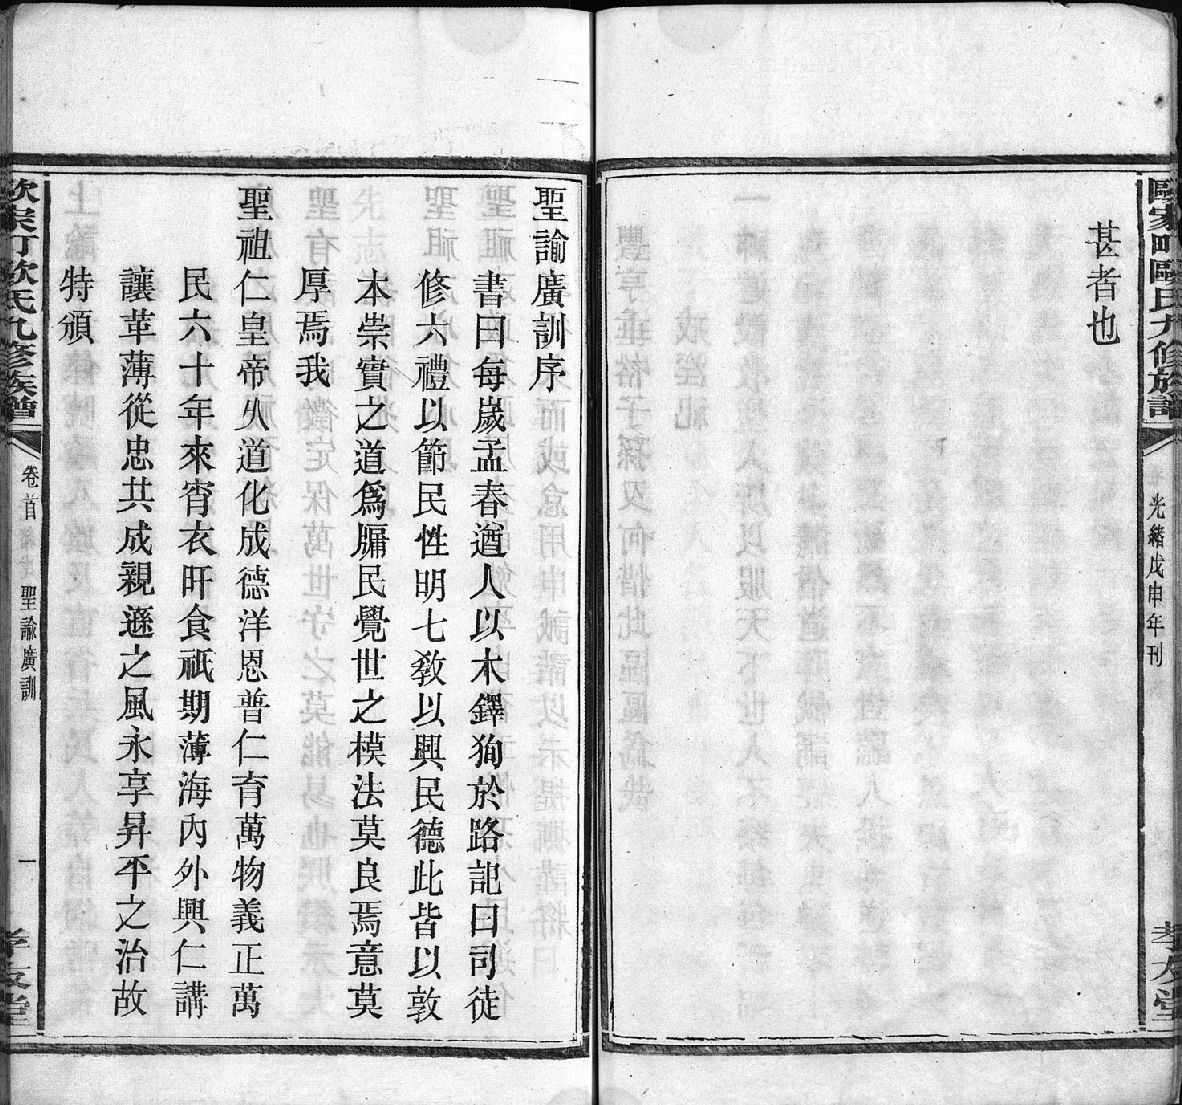 歐家町歐氏九修族譜
光緒戊申年刊
孝友堂
甚者也
聖諭廣訓序
書曰每歲孟春遒人以木鐸狥於路記曰司徒
修六禮以節民性明七教以興民德此皆以敦
本崇實之道爲牖民覺世之模法莫良焉意莫
厚焉我
聖祖仁皇帝久道化成德洋恩普仁育萬物義正萬
民六十年來宵衣旰食祇期薄海內外興仁講
讓革薄從忠共成親遜之風永享昇平之治故
特頒
九修族譜
卷首
聖諭廣訓
一
孝友堂